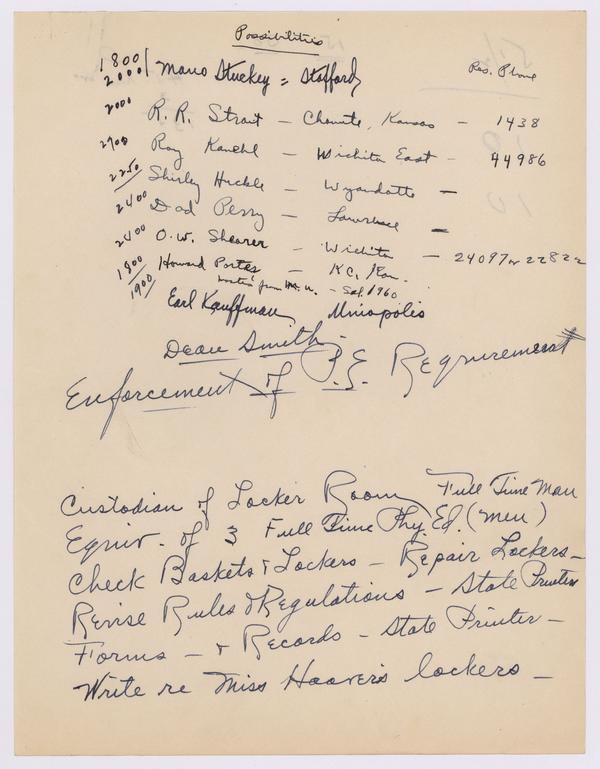 Possibilities
Res. Phone
1800
2000 Mano Stuckey = Stafford
2000 R. R. Strait — Chanute, Kansas — 1438
2700 Ray Kanehl — Wichita East — 44986
2250 Shirley Huckle — Wyandotte —
2400 Dad Perry — Lawrence —
2400 O.W. Shearer — Wichita — 24097 or 22822
1800 Howard Porter — K.C., Kan.
1900 from — Sal. 1960
Earl Kauffman, MinIopolis
Dean Smith
Enforcement of P.E. Requirement
Custodian of Locker Room, Full Time Man
Equiv. of 3 Full Time Phy. Ed. (Men)
Check Baskets & Lockers — Repair Lockers —
Revise Rules & Regulations — State Printer
Forms — & Records — State Printer —
Write re Miss Hoover's lockers —